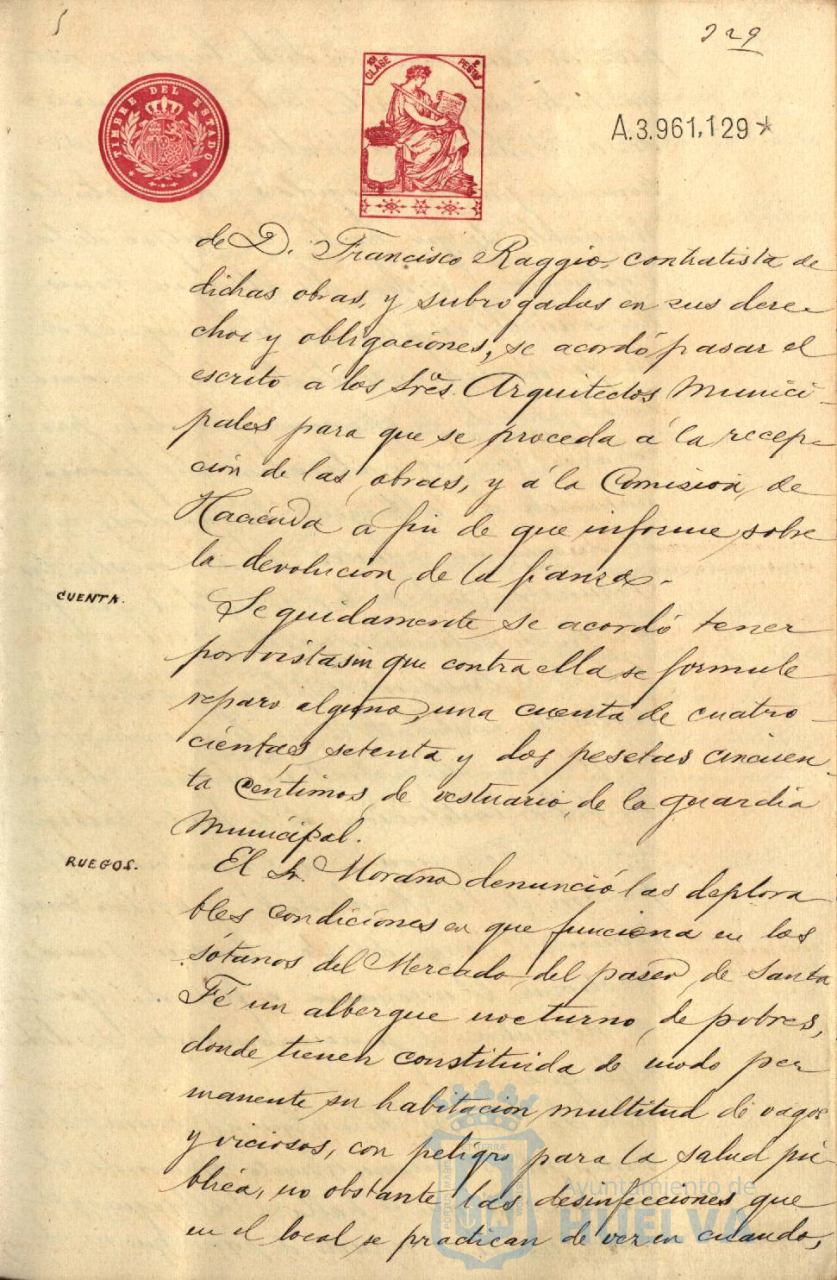 229
TIMBRE DEL ESTADO
CLASE
A.3.961,129
de D. Francisco Raggio, contratista de
dichas obras, y subrogados en sus dere-
chos y obligaciones, se acordó pasar el
escrito á los Sres. Arquitectos Munici-
pales para que se proceda á la recep-
ción de las obras, y á la Comisión de
Hacienda á fin de que informe sobre
la devolucion de la fianza.-
CUENTA.
Seguidamente se acordó tener
por vista sin que contra ella se formule
reparo alguno, una cuenta de cuatro-
cientas setenta y dos pesetas cincuen-
ta céntimos, de vestuario de la guardia
Municipal.
RUEGOS.
El Sr. Morano denunció las deplora-
bles condiciones en que funciona en los
sótanos del Mercado del paseo de Santa
Fé un albergue nocturno de pobres,
donde tienen constituida de modo per
manente su habitación multitud de vagos
y viciosos, con peligro para la salud pú-
blica, no obstante las desinfecciones que
en el local se practican de vez en cuando,
Ayuntamiento de
HUELVA